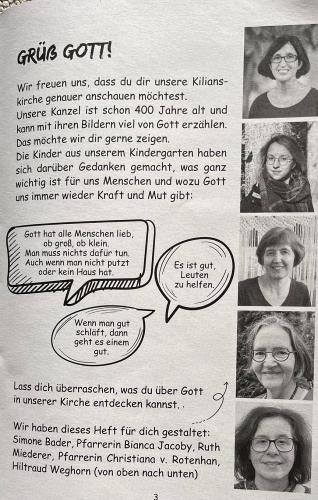 GRÜß GOTT!
Wir freuen uns, dass du dir unsere Kilians-
kirche genauer anschauen möchtest.
Unsere Kanzel ist schon 400 Jahre alt und
kann mit ihren Bildern viel von Gott erzählen.
Das möchte wir dir gerne zeigen.
Die Kinder aus unserem Kindergarten haben
sich darüber Gedanken gemacht, was ganz
wichtig ist für uns Menschen und wozu Gott
uns immer wieder Kraft und Mut gibt:
Gott hat alle Menschen lieb,
ob groß, ob klein.
Man muss nichts dafür tun.
Auch wenn man nicht putzt
oder kein Haus hat.
Es ist gut,
Leuten
zu helfen.
Wenn man gut
schläft, dann
geht es einem
gut.
Lass dich überraschen, was du über Gott
in unserer Kirche entdecken kannst. .
Wir haben dieses Heft für dich gestaltet:
Simone Bader, Pfarrerin Bianca Jacoby, Ruth
Miederer, Pfarrerin Christiana v. Rotenhan,
Hiltraud Weghorn (von oben nach unten)
3